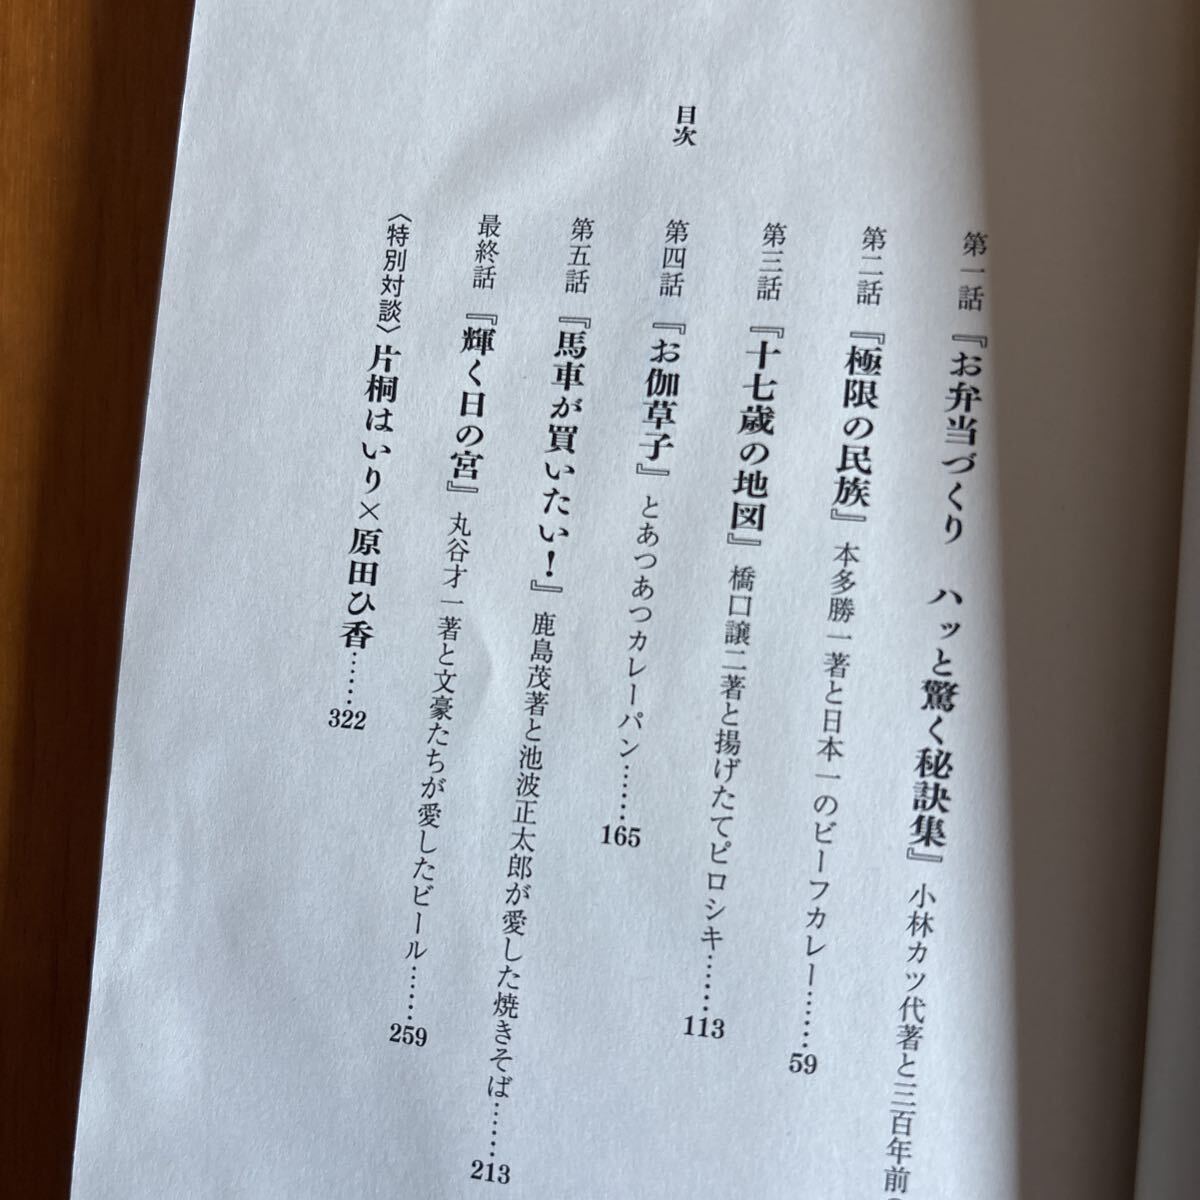 目次
第一話 『お弁当づくり ハッと驚く秘訣集』 小林カツ代著と三百年前
第二話 『極限の民族』 本多勝一著と日本一のビーフカレー……59
第三話 『十七歳の地図』 橋口譲二著と揚げたてピロシキ……113
第四話 『お伽草子』 とあつあつカレーパン……165
第五話 『馬車が買いたい！』 鹿島茂著と池波正太郎が愛した焼きそば……213
最終話 『輝く日の宮』 丸谷才一著と文豪たちが愛したビール……259
〈特別対談〉片桐はいり×原田ひ香……322